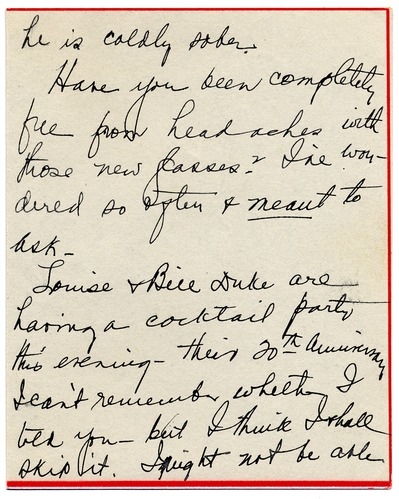 he is coldly sober.
Have you been completely
free from headaches with
those new glasses? I've won-
dered so often & meant to
ask—
Louise & Bill Duke are
having a cocktail party
this evening— their 20th anniversary
I can't remember whether I
told you— but I think I shall
skip it. I might not be able